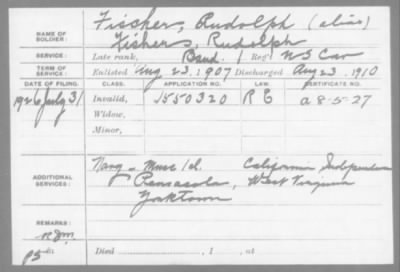 Fischer, Rudolph (alias)
NAME OF SOLDIER: Fishers, Rudolph
SERVICE: Late rank, Band, Reg't US Cav
TERM OF SERVICE: Enlisted Aug 23, 1907 Discharged Aug 23, 1910
DATE OF FILING. CLASS. APPLICATION NO. LAW. CERTIFICATE NO.
1926 July 31 Invalid, 1550320 R E a 8-5-27
Widow,
Minor,
ADDITIONAL SERVICES: Navy - Musc 1cl. California Independence
Pensacola, West Virginia
Yorktown
REMARKS:
Died , 1 , at